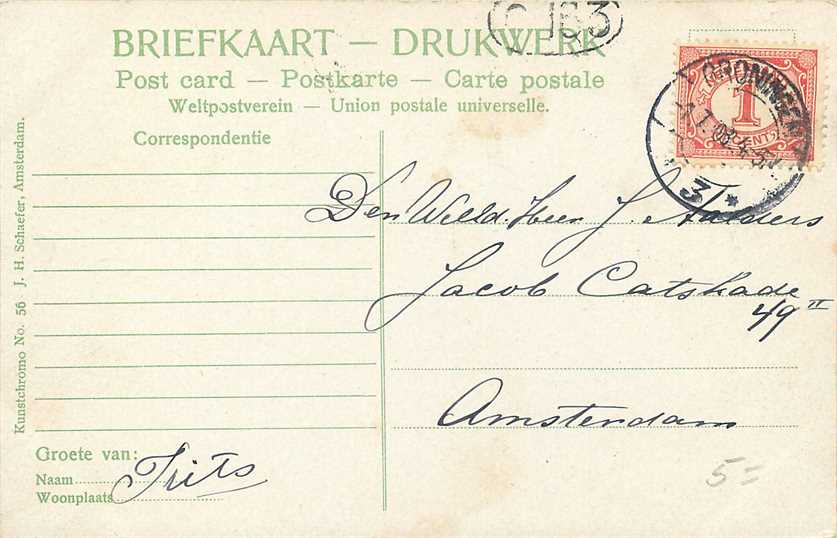 C 163
BRIEFKAART — DRUKWERK
Post card — Postkarte — Carte postale
Weltpostverein — Union postale universelle.
Correspondentie
GRONINGEN
1
CENT
3 *
Den WelEd. Heer J. Aalders
Jacob Catskade
49 II
Amsterdam
Groete van:
Naam
Frits
Woonplaats
5=
Kunstchromo No. 56 J. H. Schaefer, Amsterdam.